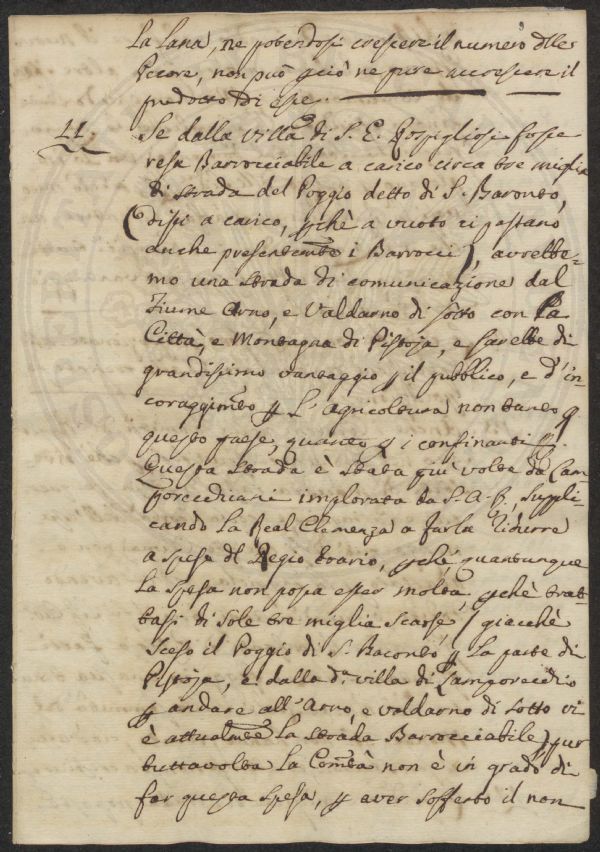 La Lana, ne potendosi crescere il numero dlle
Pecore, non può p ciò ne pure accrescere il
prodotto di esse.
11. Se dalla villa di S. E. Rospigliosi fosse
resa Barrocciabile a carico circa tre miglia
di strada del Poggio detto di S. Baronto,
(dissi a carico, pchè a vuoto ci passano
anche presentemte i Barrocci), avrebbe-
mo una strada di comunicazione dal
Fiume Arno, e Valdarno di sotto con la
Città, e Montagna di Pistoja, e sarebbe di
grandissimo vantaggio p il pubblico, e d'in-
coraggimto p L'agricoltura non tanto p
questo paese, quanto p i confinanti
Questa strada è stata più volte da Cam-
porecchiani implorata da S. A. R., suppli-
cando La Real Clemenza a farla ridurre
a spese dl Regio Erario, pchè quantunque
La spesa non possa esser molta, pchè trat-
tasi di sole tre miglia scarse (giacchè
sceso il Poggio di S. Baronto p La parte di
Pistoja, e dalla da. villa di Lamporecchio
p andare all'Arno, e valdarno di sotto vi
è attualmte La strada Barrocciabile) pur
tuttavolta La Comtà non è in grado di
far questa spesa, p aver sofferto il non